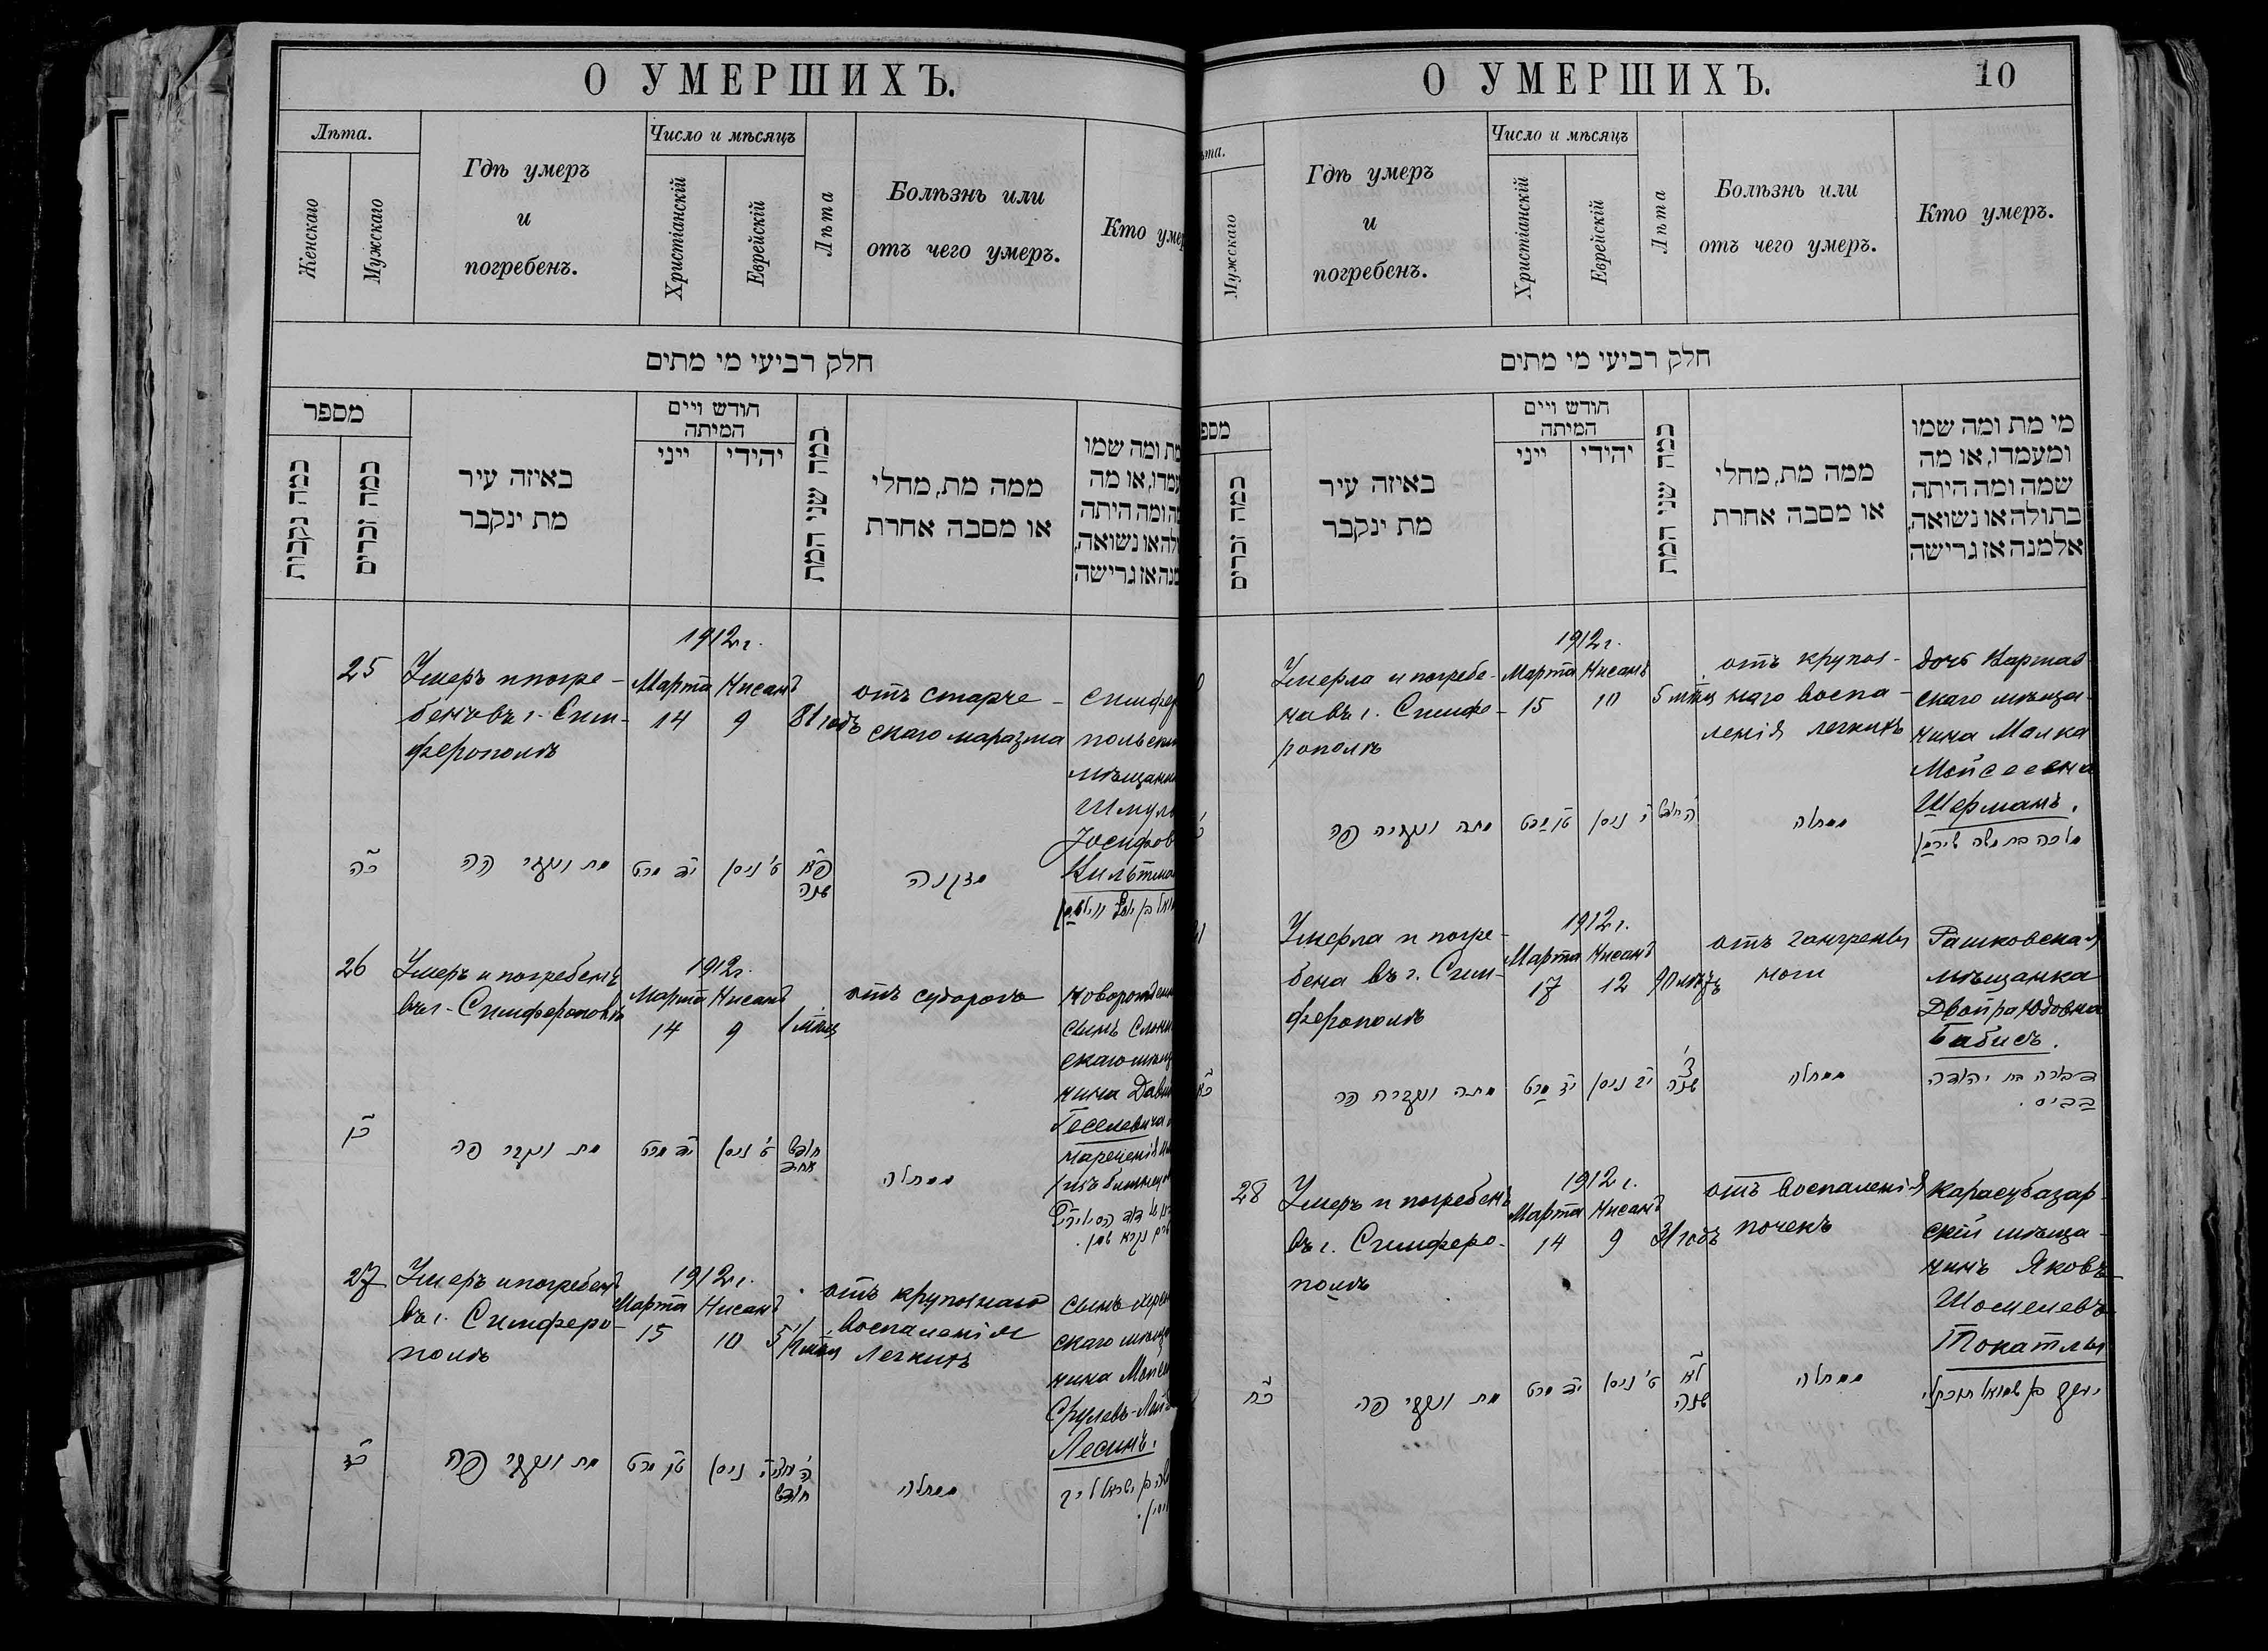 О УМЕРШИХЪ.
Лѣта.
Женскаго
Мужскаго
Гдѣ умеръ
и
погребенъ.
Число и мѣсяцъ
Христіанскій
Еврейскій
Лѣта
Болѣзнь или
отъ чего умеръ.
Кто умер
חלק רביעי מי מתים
מספר
כמה נקבות
כמה זכרים
באיזה עיר
מת ינקבר
חודש ויים
המיתה
ייני
יהודי
כמה שני המת
ממה מת, מחלי
או מסבה אחרת
מת ומה שמו
עמדו, או מה
מה ומה היתה
ולה או נשואה,
מנה או גרישה
25
Умеръ и погре-
бенъ въ г. Сим-
ферополѣ
1912 г.
Марта Нисанъ
14 9
81 годъ
отъ старче-
скаго маразма
Симфер
польскі
мѣщани
Шмуль
Іосифов
Кильтма
כה
מת ונקבר פה
יד מרט
ט' ניסן
פא
שנה
מזקנה
26
Умеръ и погребенъ
въ г. Симферополѣ
1912 г.
Марта Нисанъ
14 9
1 мѣсц
отъ судорогъ
новорожденн
сынъ Слони
скаго мѣщ
нина Дави
Геселевича
нареченія
כו
מת ונקבר פה
יד מרט
ט' ניסן
חודש
אחד
ממחלה
27
Умеръ и погребенъ
въ г. Симферо-
полѣ
1912 г.
Марта Нисанъ
15 10
5 1/2 мѣсц
отъ крупознаго
воспаленія
легкихъ
сынъ Херсон
скаго мѣща
нина Моисе
Срулевъ-Лей
Лесинъ.
כז
מת ונקבר פה
טו מרט
י' ניסן
ה' וחצי
חודש
ממחלה
О УМЕРШИХЪ.
10
ѣта.
Мужскаго
Гдѣ умеръ
и
погребенъ.
Число и мѣсяцъ
Христіанскій
Еврейскій
Лѣта
Болѣзнь или
отъ чего умеръ.
Кто умеръ.
חלק רביעי מי מתים
מספ
כמה זכרים
באיזה עיר
מת ינקבר
חודש ויים
המיתה
ייני
יהודי
כמה שני המת
ממה מת, מחלי
או מסבה אחרת
מי מת ומה שמו
ומעמדו, או מה
שמה ומה היתה
בתולה או נשואה,
אלמנה או גרישה
Умерла и погребе-
на въ г. Симфе-
рополѣ
1912 г.
Марта Нисанъ
15 10
5 мѣсц
отъ крупоз-
наго воспа-
ленія легкихъ
дочь Картав-
скаго мѣща-
нина Малка
Мойсеевна
Шерманъ.
מתה ונקברה פה
טו מרט
י ניסן
ה' חודש
ממחלה
מלכה בת משה שירמן
Умерла и погре-
бена въ г. Сим-
ферополѣ
1912 г.
Марта Нисанъ
17 12
90 лѣтъ
отъ гангрены
ноги
Рашковская
мѣщанка
Двойра Юдовна
Бабисъ.
מתה ונקברה פה
יז מרט
יב ניסן
צ'
שנה
ממחלה
דבורה בת יהודה
בביס.
28
Умеръ и погребенъ
въ г. Симферо-
полѣ
1912 г.
Марта Нисанъ
14 9
31 годъ
отъ воспаленія
почекъ
Карасубазар-
скій мѣща-
нинъ Яковъ
Шомелевъ
Токатлы
כח
מת ונקבר פה
יד מרט
ט' ניסן
לא
שנה
ממחלה
יעקב בן שמואל תוכתלי